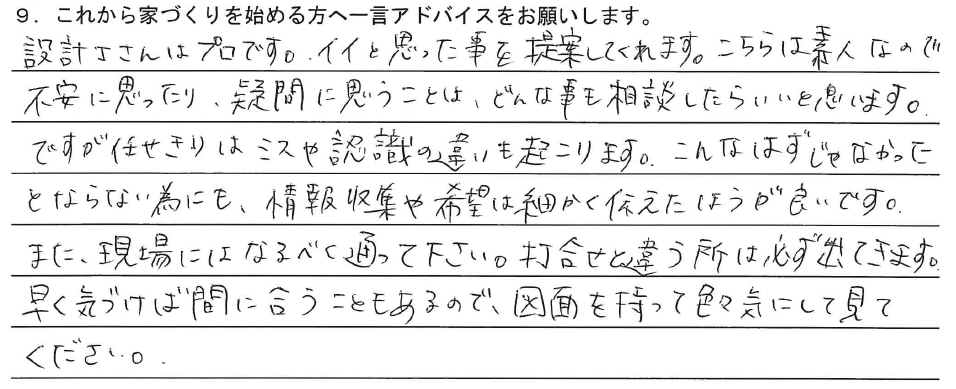 9．これから家づくりを始める方へ一言アドバイスをお願いします。
設計士さんはプロです。イイと思った事を提案してくれます。こちらは素人なので
不安に思ったり、疑問に思うことは、どんな事も相談したらいいと思います。
ですが任せきりはミスや認識の違いも起こります。こんなはずじゃなかった
とならない為にも、情報収集や希望は細かく伝えたほうが良いです。
また、現場にはなるべく通って下さい。打合せと違う所は必ず出てきます。
早く気づけば間に合うこともあるので、図面を持って色々気にして見て
ください。